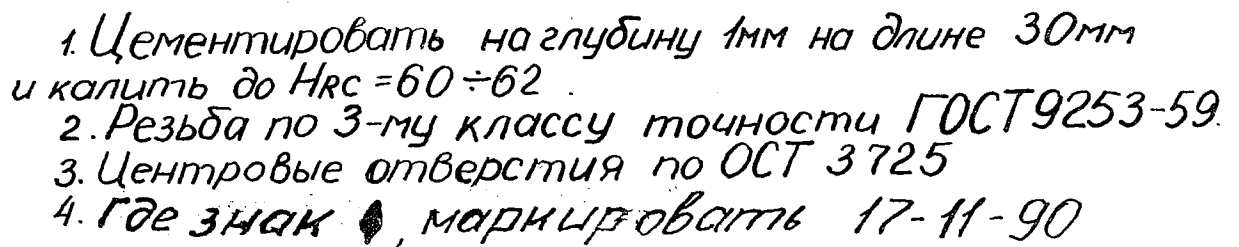 1. Цементировать на глубину 1мм на длине 30мм
и калить до HRC =60÷62 .
2. Резьба по 3-му классу точности ГОСТ 9253-59.
3. Центровые отверстия по ОСТ 3725
4. Где знак , маркировать 17-11-90